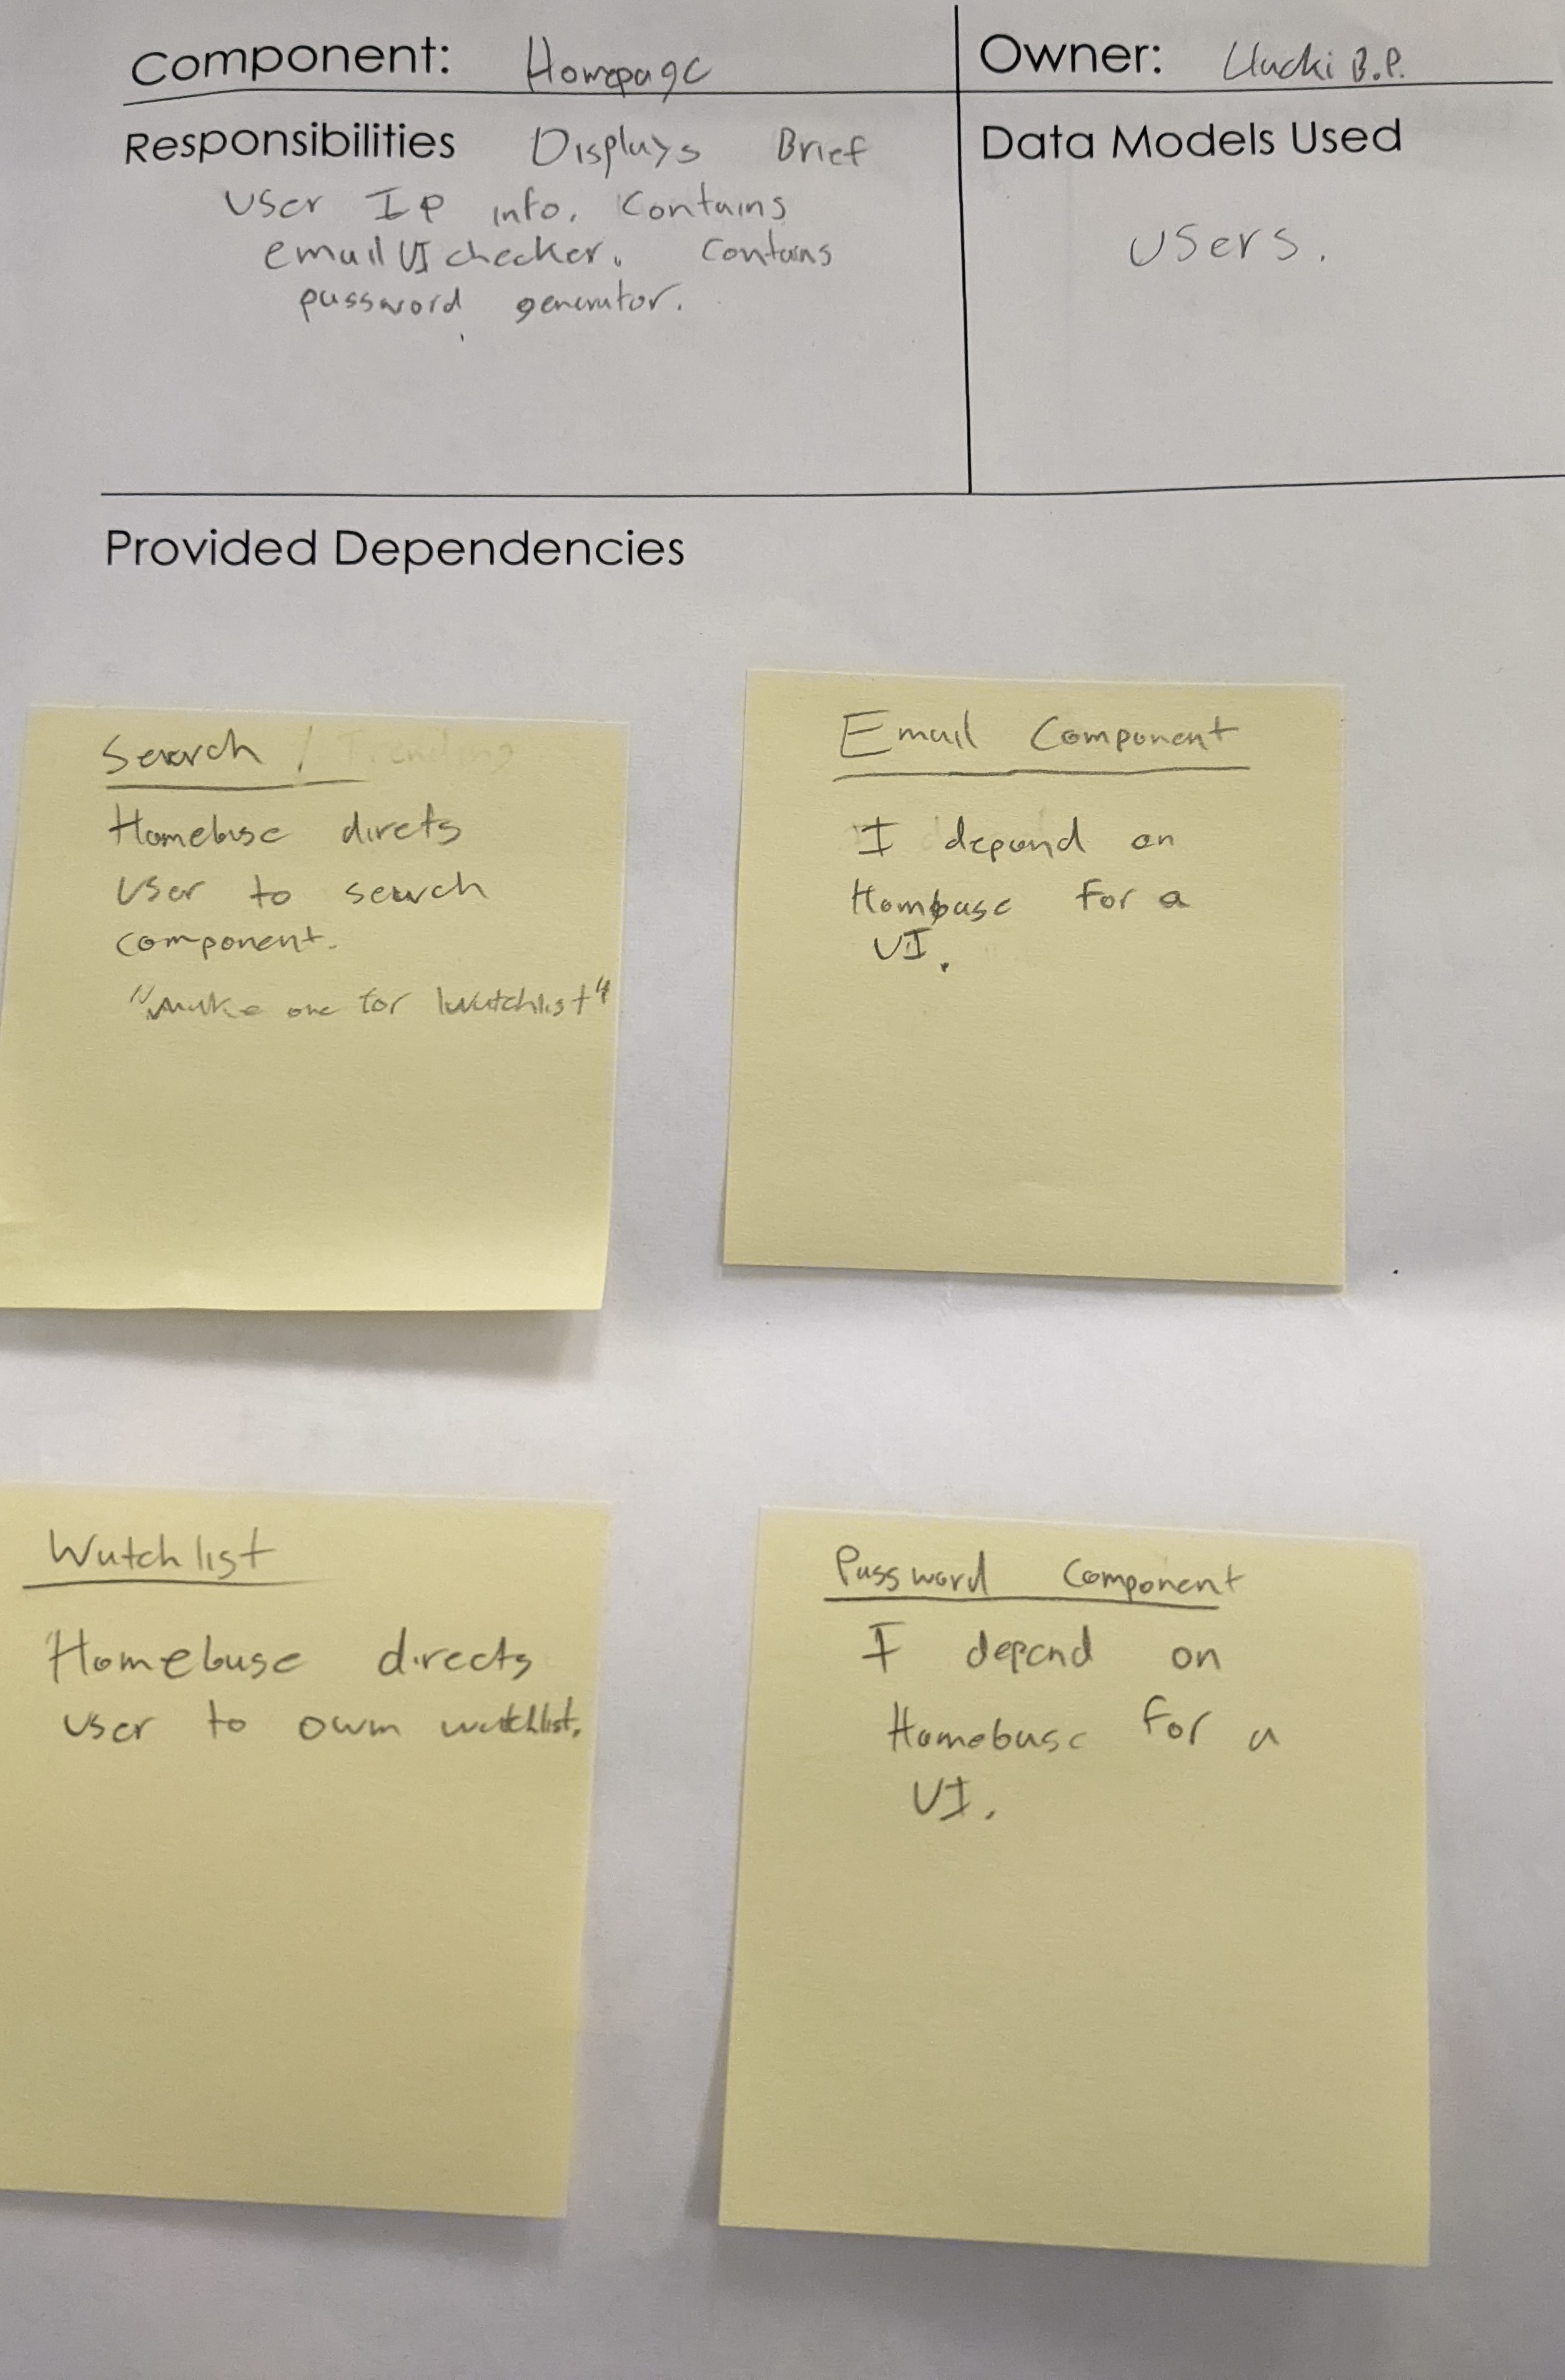 Component: Homepage
Owner: B.P.
Responsibilities Displays Brief
User IP info. Contains
email UI checker. Contains
password generator.
Data Models Used
Users.
Provided Dependencies
Search / Trending
Homebase directs
User to search
component.
"make one for Watchlist"
Email Component
I depend on
Hombase for a
UI.
Watchlist
Homebase directs
User to own watchlist.
Password Component
I depend on
Homebase for a
UI.